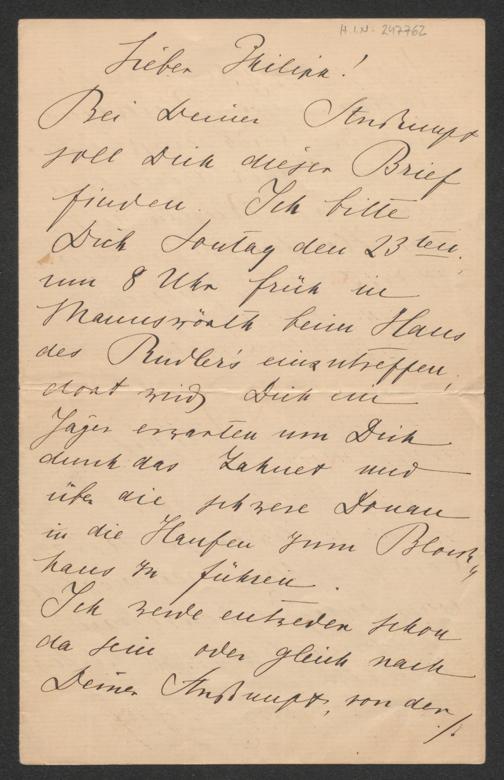 H.I.N. 247762
Lieber Philipp!
Bei Deiner Ankunft
soll Dich dieser Brief
finden. Ich bitte
Dich Sontag den 23ten
um 8 Uhr früh in
Mannswörth beim Haus
des Rudler's einzutreffen,
dort wird Dich ein
Jäger erwarten um Dich
durch das und
über die schwere Donau
in die Haufen zum Block„
haus zu führen.
Ich werde entweder schon
da sein oder gleich nach
Deiner Ankunft, von der
./.